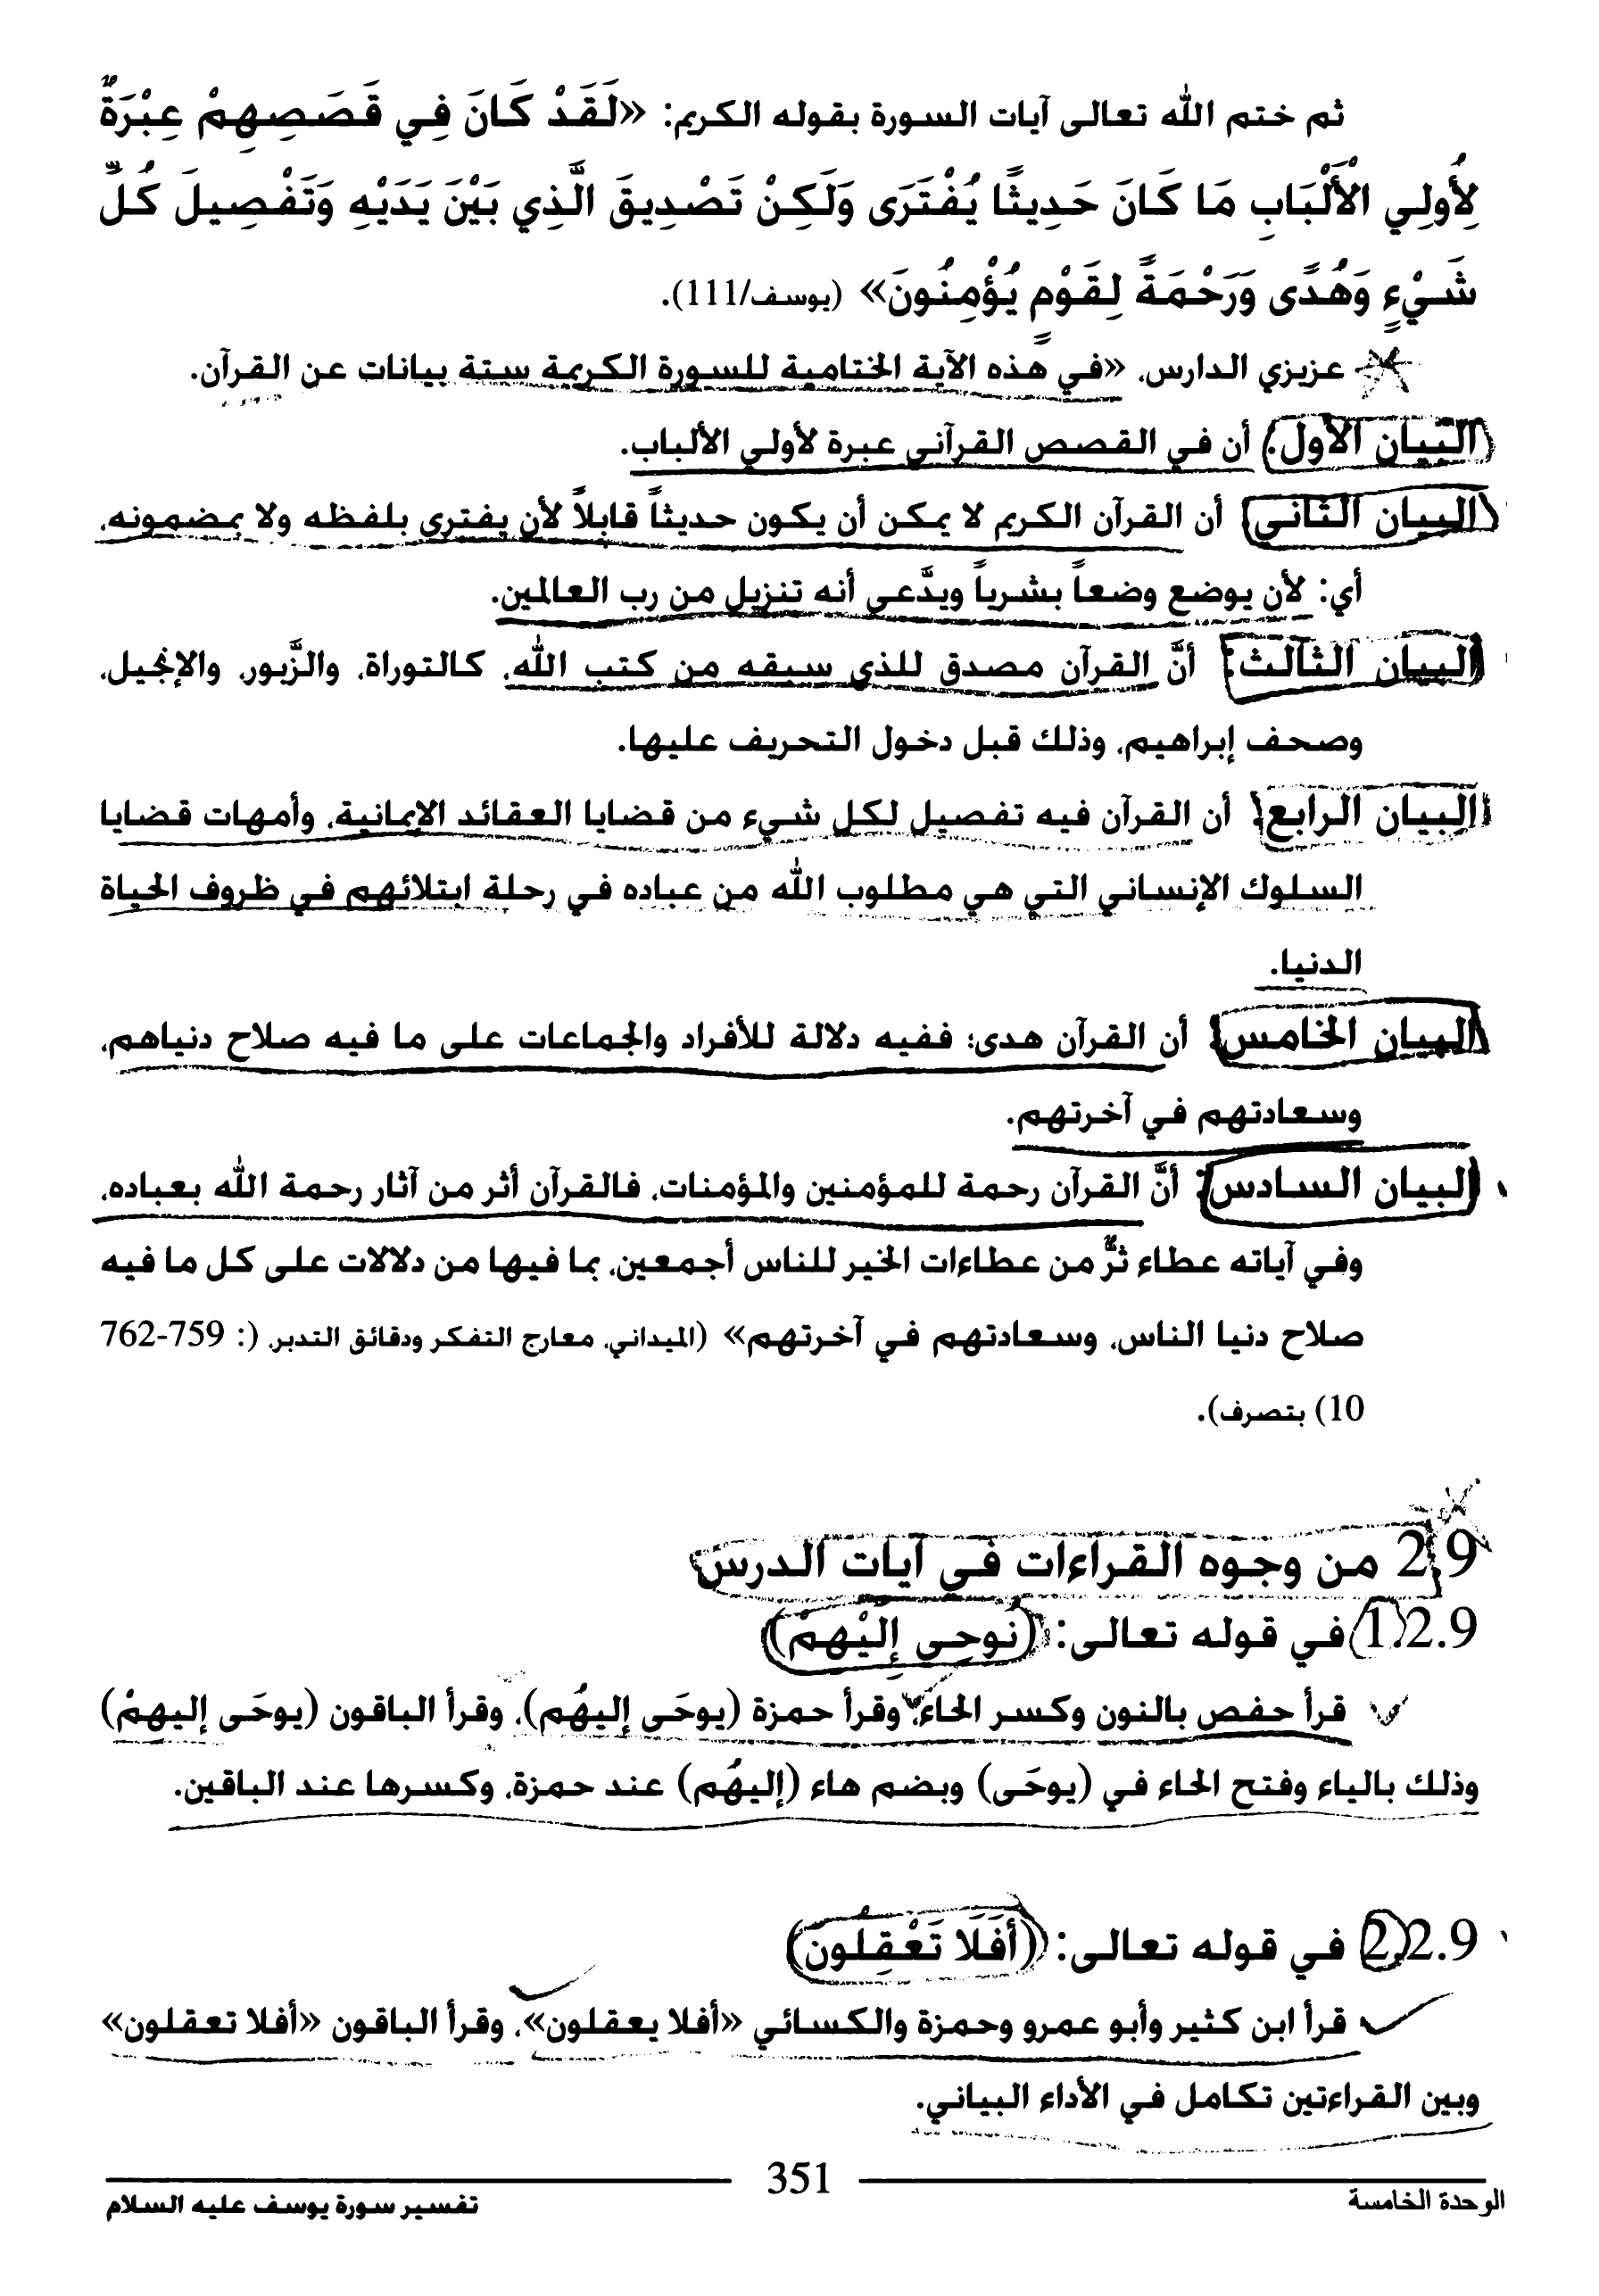 ثم ختم الله تعالى آيات السورة بقوله الكريم: «لَقَدْ كَانَ فِي قَصَصِهِمْ عِبْرَةٌ
لِأُولِي الْأَلْبَابِ مَا كَانَ حَدِيثًا يُفْتَرَى وَلَكِنْ تَصْدِيقَ الَّذِي بَيْنَ يَدَيْهِ وَتَفْصِيلَ كُلِّ
شَيْءٍ وَهُدًى وَرَحْمَةً لِقَوْمٍ يُؤْمِنُونَ» (يوسف/111).
عزيزي الدارس، «في هذه الآية الختامية للسورة الكريمة ستة بيانات عن القرآن.
البيان الأول: أن في القصص القرآني عبرة لأولي الألباب.
البيان الثاني: أن القرآن الكريم لا يمكن أن يكون حديثاً قابلاً لأن يفترى بلفظه ولا بمضمونه،
أي: لأن يوضع وضعاً بشرياً ويدَّعى أنه تنزيل من رب العالمين.
البيان الثالث: أنَّ القرآن مصدق للذي سبقه من كتب الله، كالتوراة، والزَّبور، والإنجيل،
وصحف إبراهيم، وذلك قبل دخول التحريف عليها.
البيان الرابع: أن القرآن فيه تفصيل لكل شيء من قضايا العقائد الإيمانية، وأمهات قضايا
السلوك الإنساني التي هي مطلوب الله من عباده في رحلة ابتلائهم في ظروف الحياة
الدنيا.
البيان الخامس: أن القرآن هدى؛ ففيه دلالة للأفراد والجماعات على ما فيه صلاح دنياهم،
وسعادتهم في آخرتهم.
البيان السادس: أنَّ القرآن رحمة للمؤمنين والمؤمنات، فالقرآن أثر من آثار رحمة الله بعباده،
وفي آياته عطاء ثرٌّ من عطاءات الخير للناس أجمعين، بما فيها من دلالات على كل ما فيه
صلاح دنيا الناس، وسعادتهم في آخرتهم» (الميداني، معارج التفكر ودقائق التدبر، (: 759-762
10) بتصرف).
2.9 من وجوه القراءات في آيات الدرس
1.2.9 في قوله تعالى: (نُوحِي إِلَيْهِمْ)
قرأ حفص بالنون وكسر الحاء، وقرأ حمزة (يوحَى إليهُم)، وقرأ الباقون (يوحَى إليهِمْ)
وذلك بالياء وفتح الحاء في (يوحَى) وبضم هاء (إليهُم) عند حمزة، وكسرها عند الباقين.
2.2.9 في قوله تعالى: (أَفَلَا تَعْقِلُونَ)
قرأ ابن كثير وأبو عمرو وحمزة والكسائي «أفلا يعقلون»، وقرأ الباقون «أفلا تعقلون»
وبين القراءتين تكامل في الأداء البياني.
351
الوحدة الخامسة
تفسير سورة يوسف عليه السلام